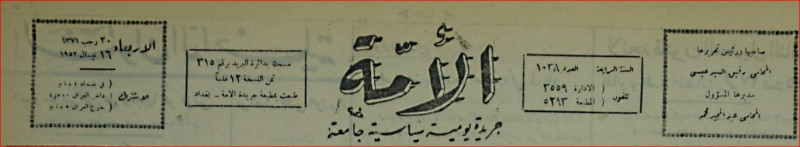 صاحبها ورئيس تحريرها
المحامي رفيق السيد عيسى
مديرها المسؤول
المحامي عبد المجيد محمد
السنة الرابعة العدد ١٠٣٨
تلفون ( الادارة ٣٥٥٩
( المطبعة ٥٢٩٣
الأمّة
جريدة يومية سياسية جامعة
مسجلة بدائرة البريد برقم ٣١٥
ثمن النسخة ١٢ فلساً
طبعت بمطبعة جريدة الأمة - بغداد
الاربعاء
٣٠ رجب ١٣٧١
١٦ نيسان ١٩٥٢
الاشتراك